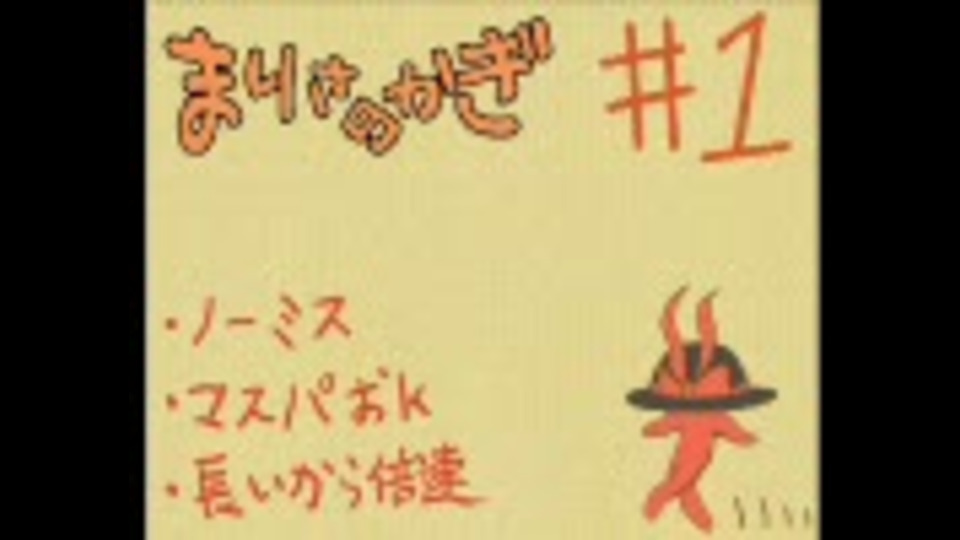 まりさのかぎ #1
・ノーミス
・マスパおk
・長いから倍速